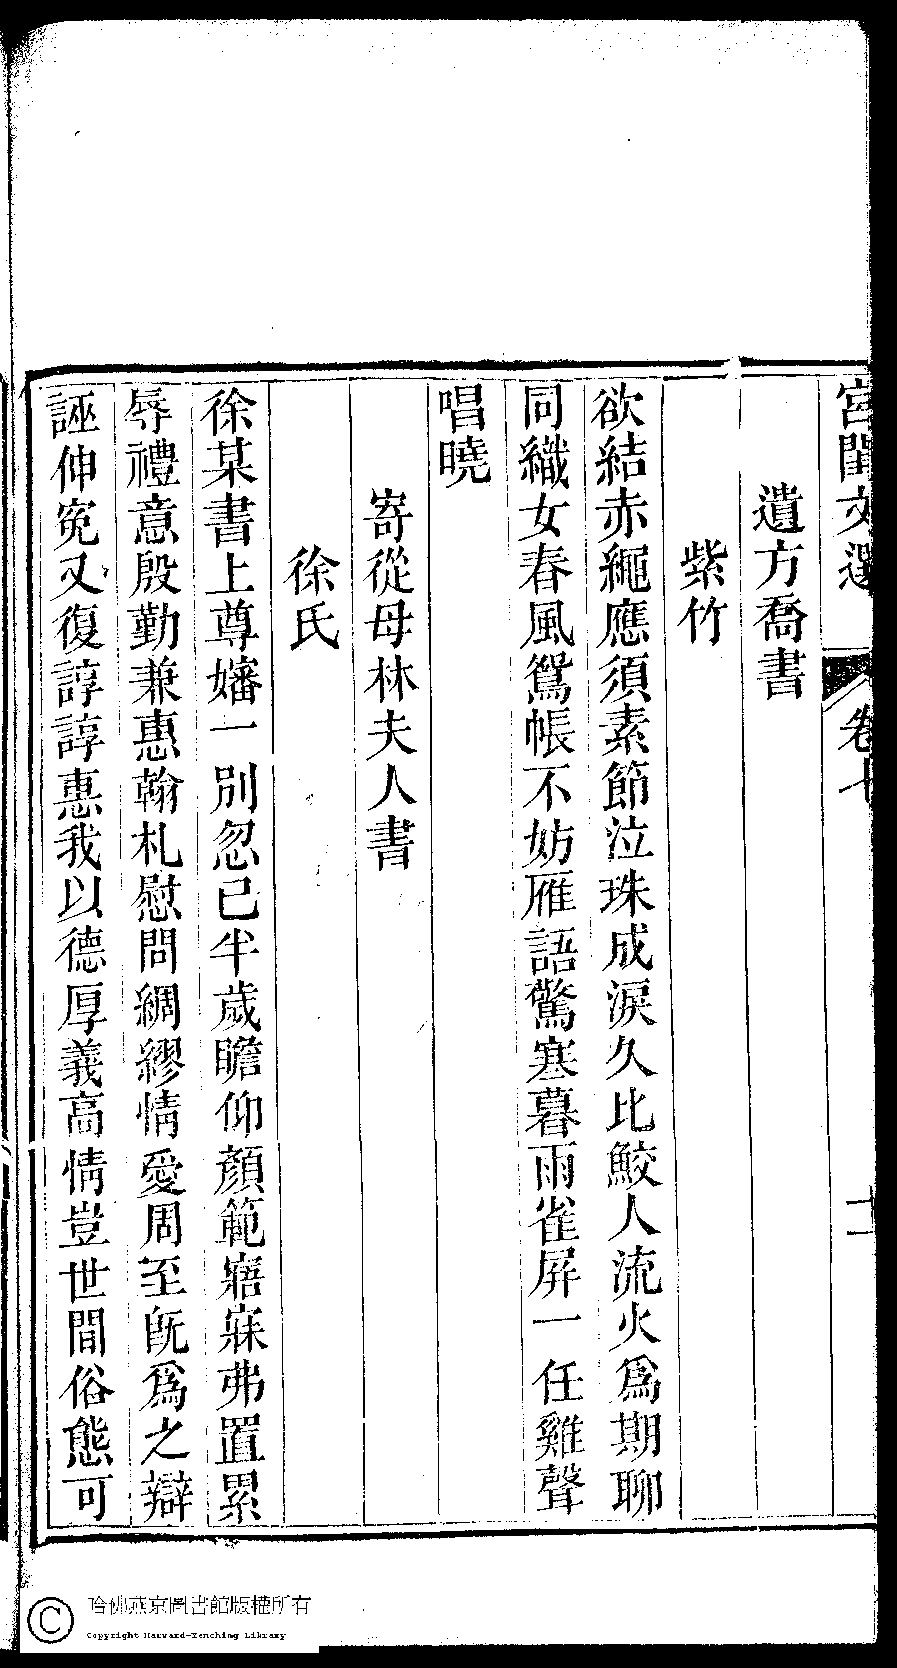 宮閨文選 卷七 十一
遺方喬書
紫竹
欲結赤繩應須素節泣珠成淚久比鮫人流火爲期聊
同織女春風鴛帳不妨雁語驚寒暮雨雀屛一任雞聲
唱曉
寄從母林夫人書
徐氏
徐某書上尊嬸一別忽已半歲瞻仰顏範寤寐弗置累
辱禮意殷勤兼惠翰札慰問綢繆情愛周至旣爲之辯
誣伸寃又復諄諄惠我以德厚義高情豈世間俗態可
哈佛燕京圖書館版權所有
Copyright Harvard-Yenching Library